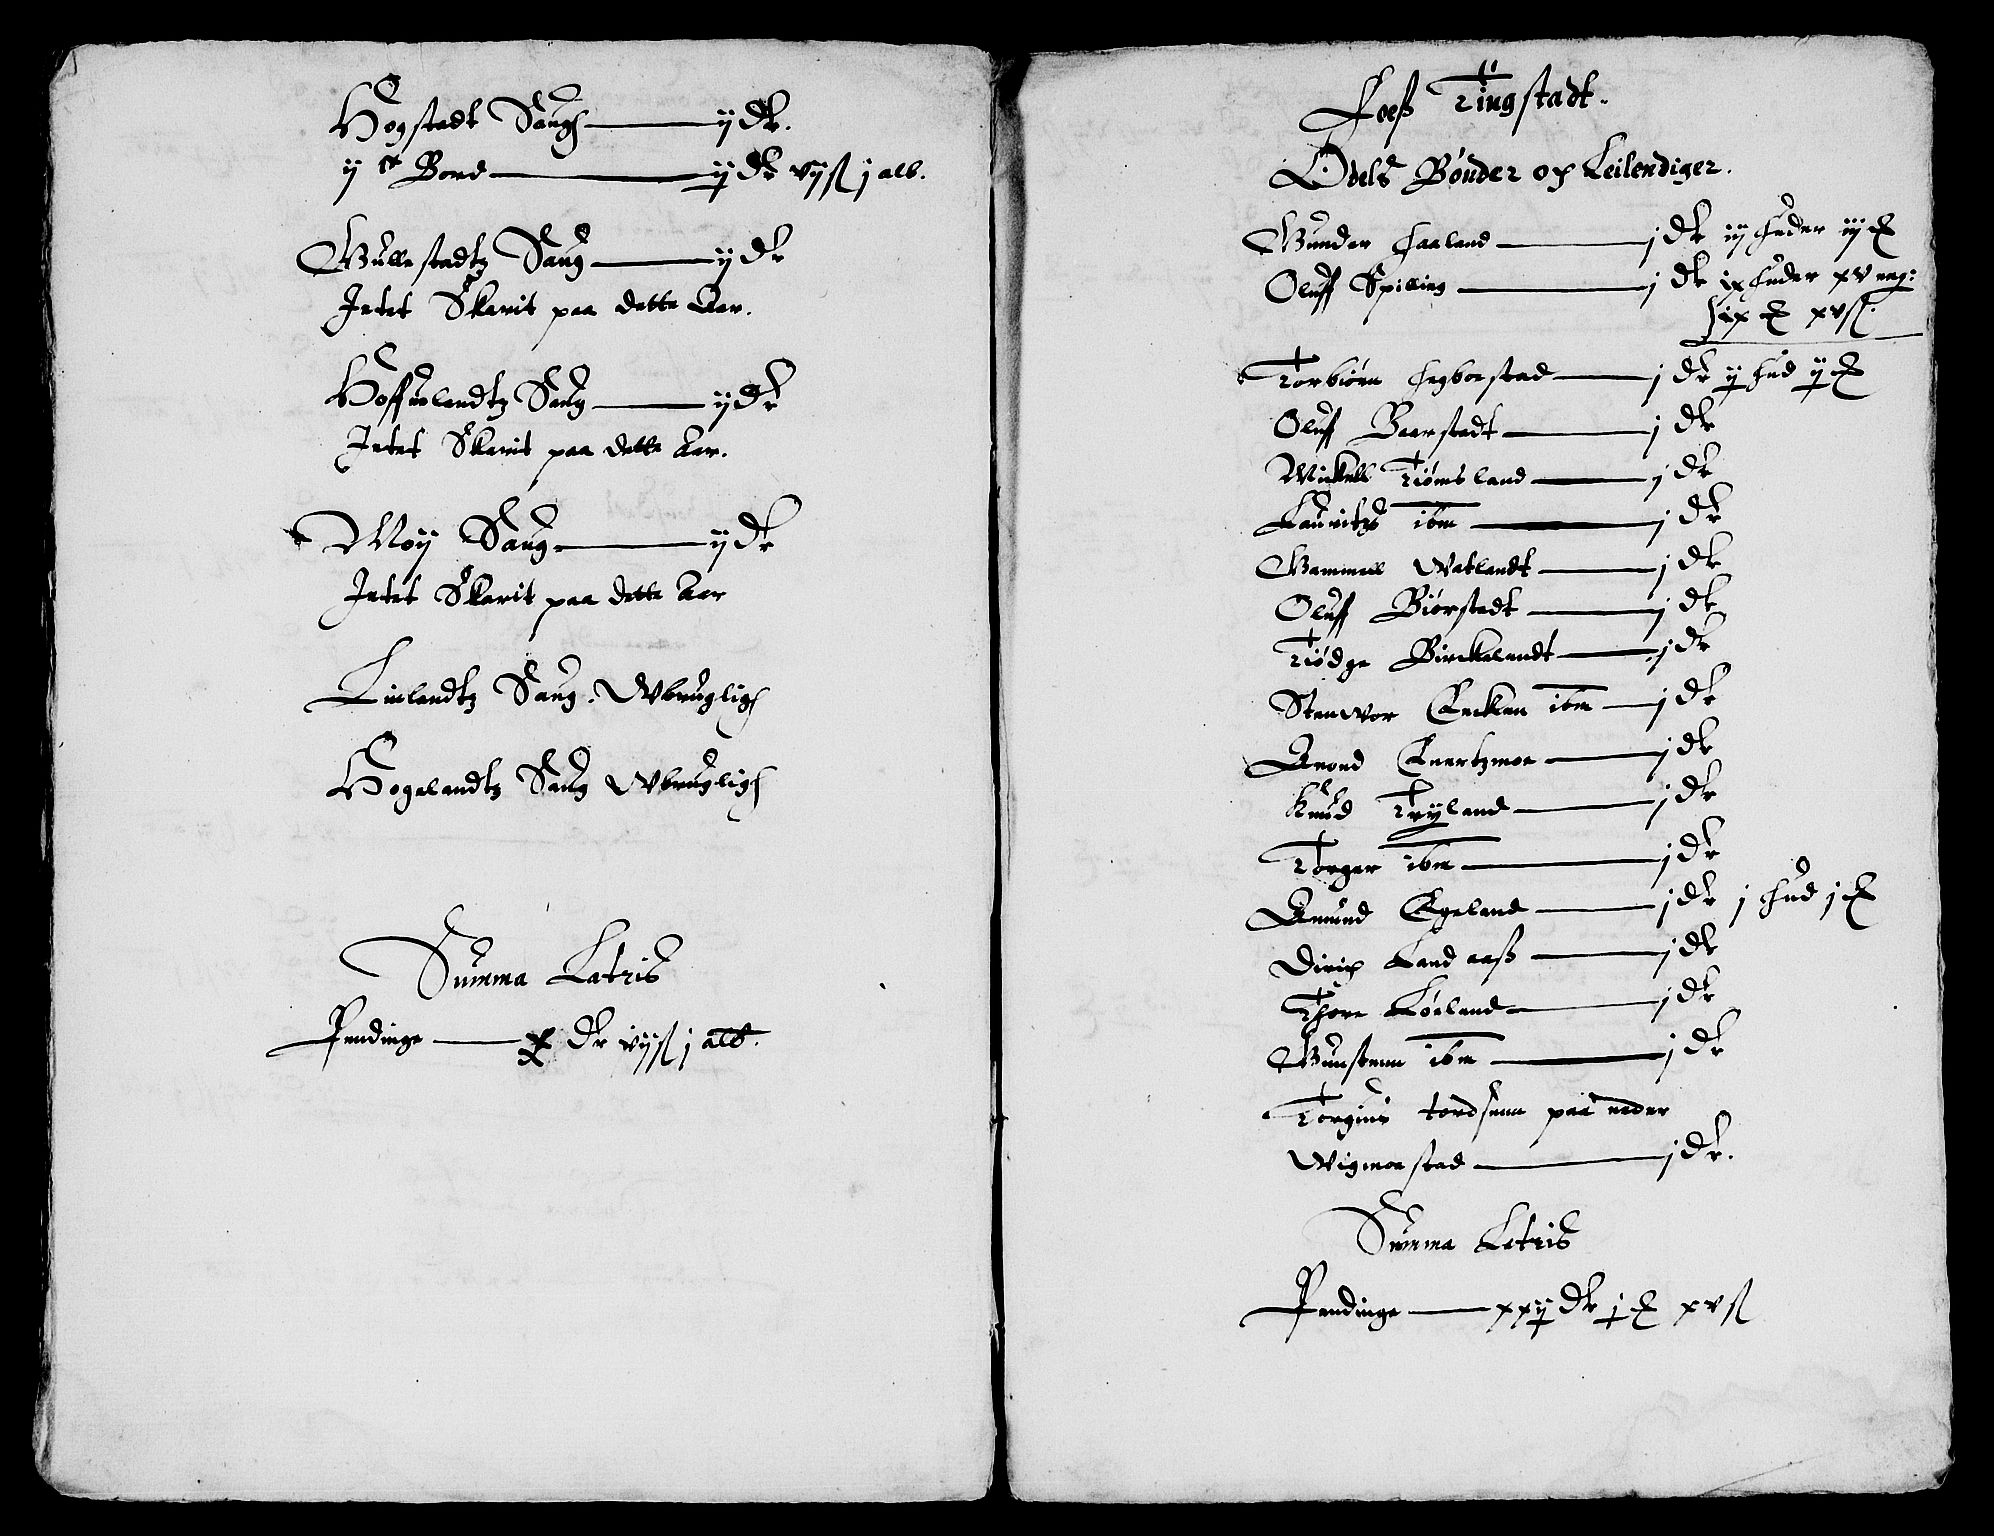 Hogstadt Saug ——— ij dr.
ij c Bord ——— ij dr vijß j alb.
Gullestadtz Saug ——— ij dr
Intet Skarit paa dette Aar.
Hoffuelandtz Saug ——— ij dr
Intet Skarit paa dette Aar.
Moij Saug ——— ij dr
Intet Skarit paa dette Aar
Linlandtz Saug. Wbrugligh
Hogelandtz Saug Wbrugligh
Summa Latris
Pendinge ——— x dr vijß j alb.
Foeß Tingstadt.
Odels Bønder och Leilendiger.
Gunder Faaland ——— j dr iij huder iij
Oluff Spilling ——— j dr ix huder xv
ix xvß.
Torbiørn Hegboestad ——— j dr ij hud ij
Oluff Baarstadt ——— j dr
Mickell Tiømsland ——— j dr
Lauritz ibm ——— j dr
Gammell Watlandt ——— j dr
Oluff Biørstadt ——— j dr
Tiødge Birckelandt ——— j dr
Stenwor Encken ibm — j dr
Anond Snartzmoe ——— j dr
Knud Tryland ——— j dr
Torger ibm ——— j dr
Amund Egeland ——— j dr j hud j
Dirich Landaaß ——— j dr
Thore Løland ——— j dr
Gunstenn ibm ——— j dr
Torgius tordsenn paa neder
Wigmoestad ——— j dr.
Summa Latris
Pendinge ——— xxij dr j xvß